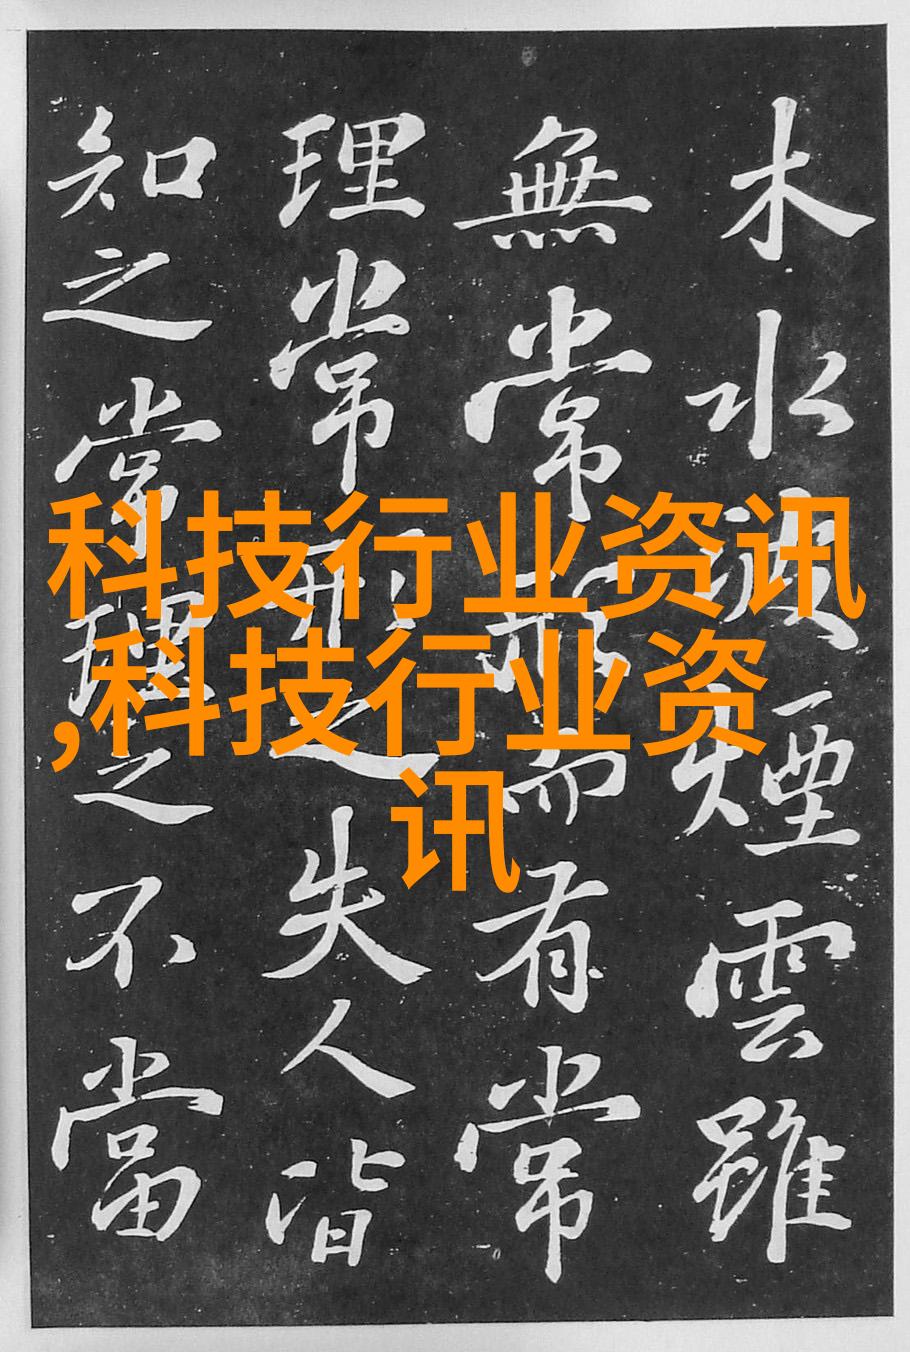 木水波煙雲雖
無常形而有常
理常形之失人皆
知之常理之不當
科技行业资讯
,科技行业资
讯